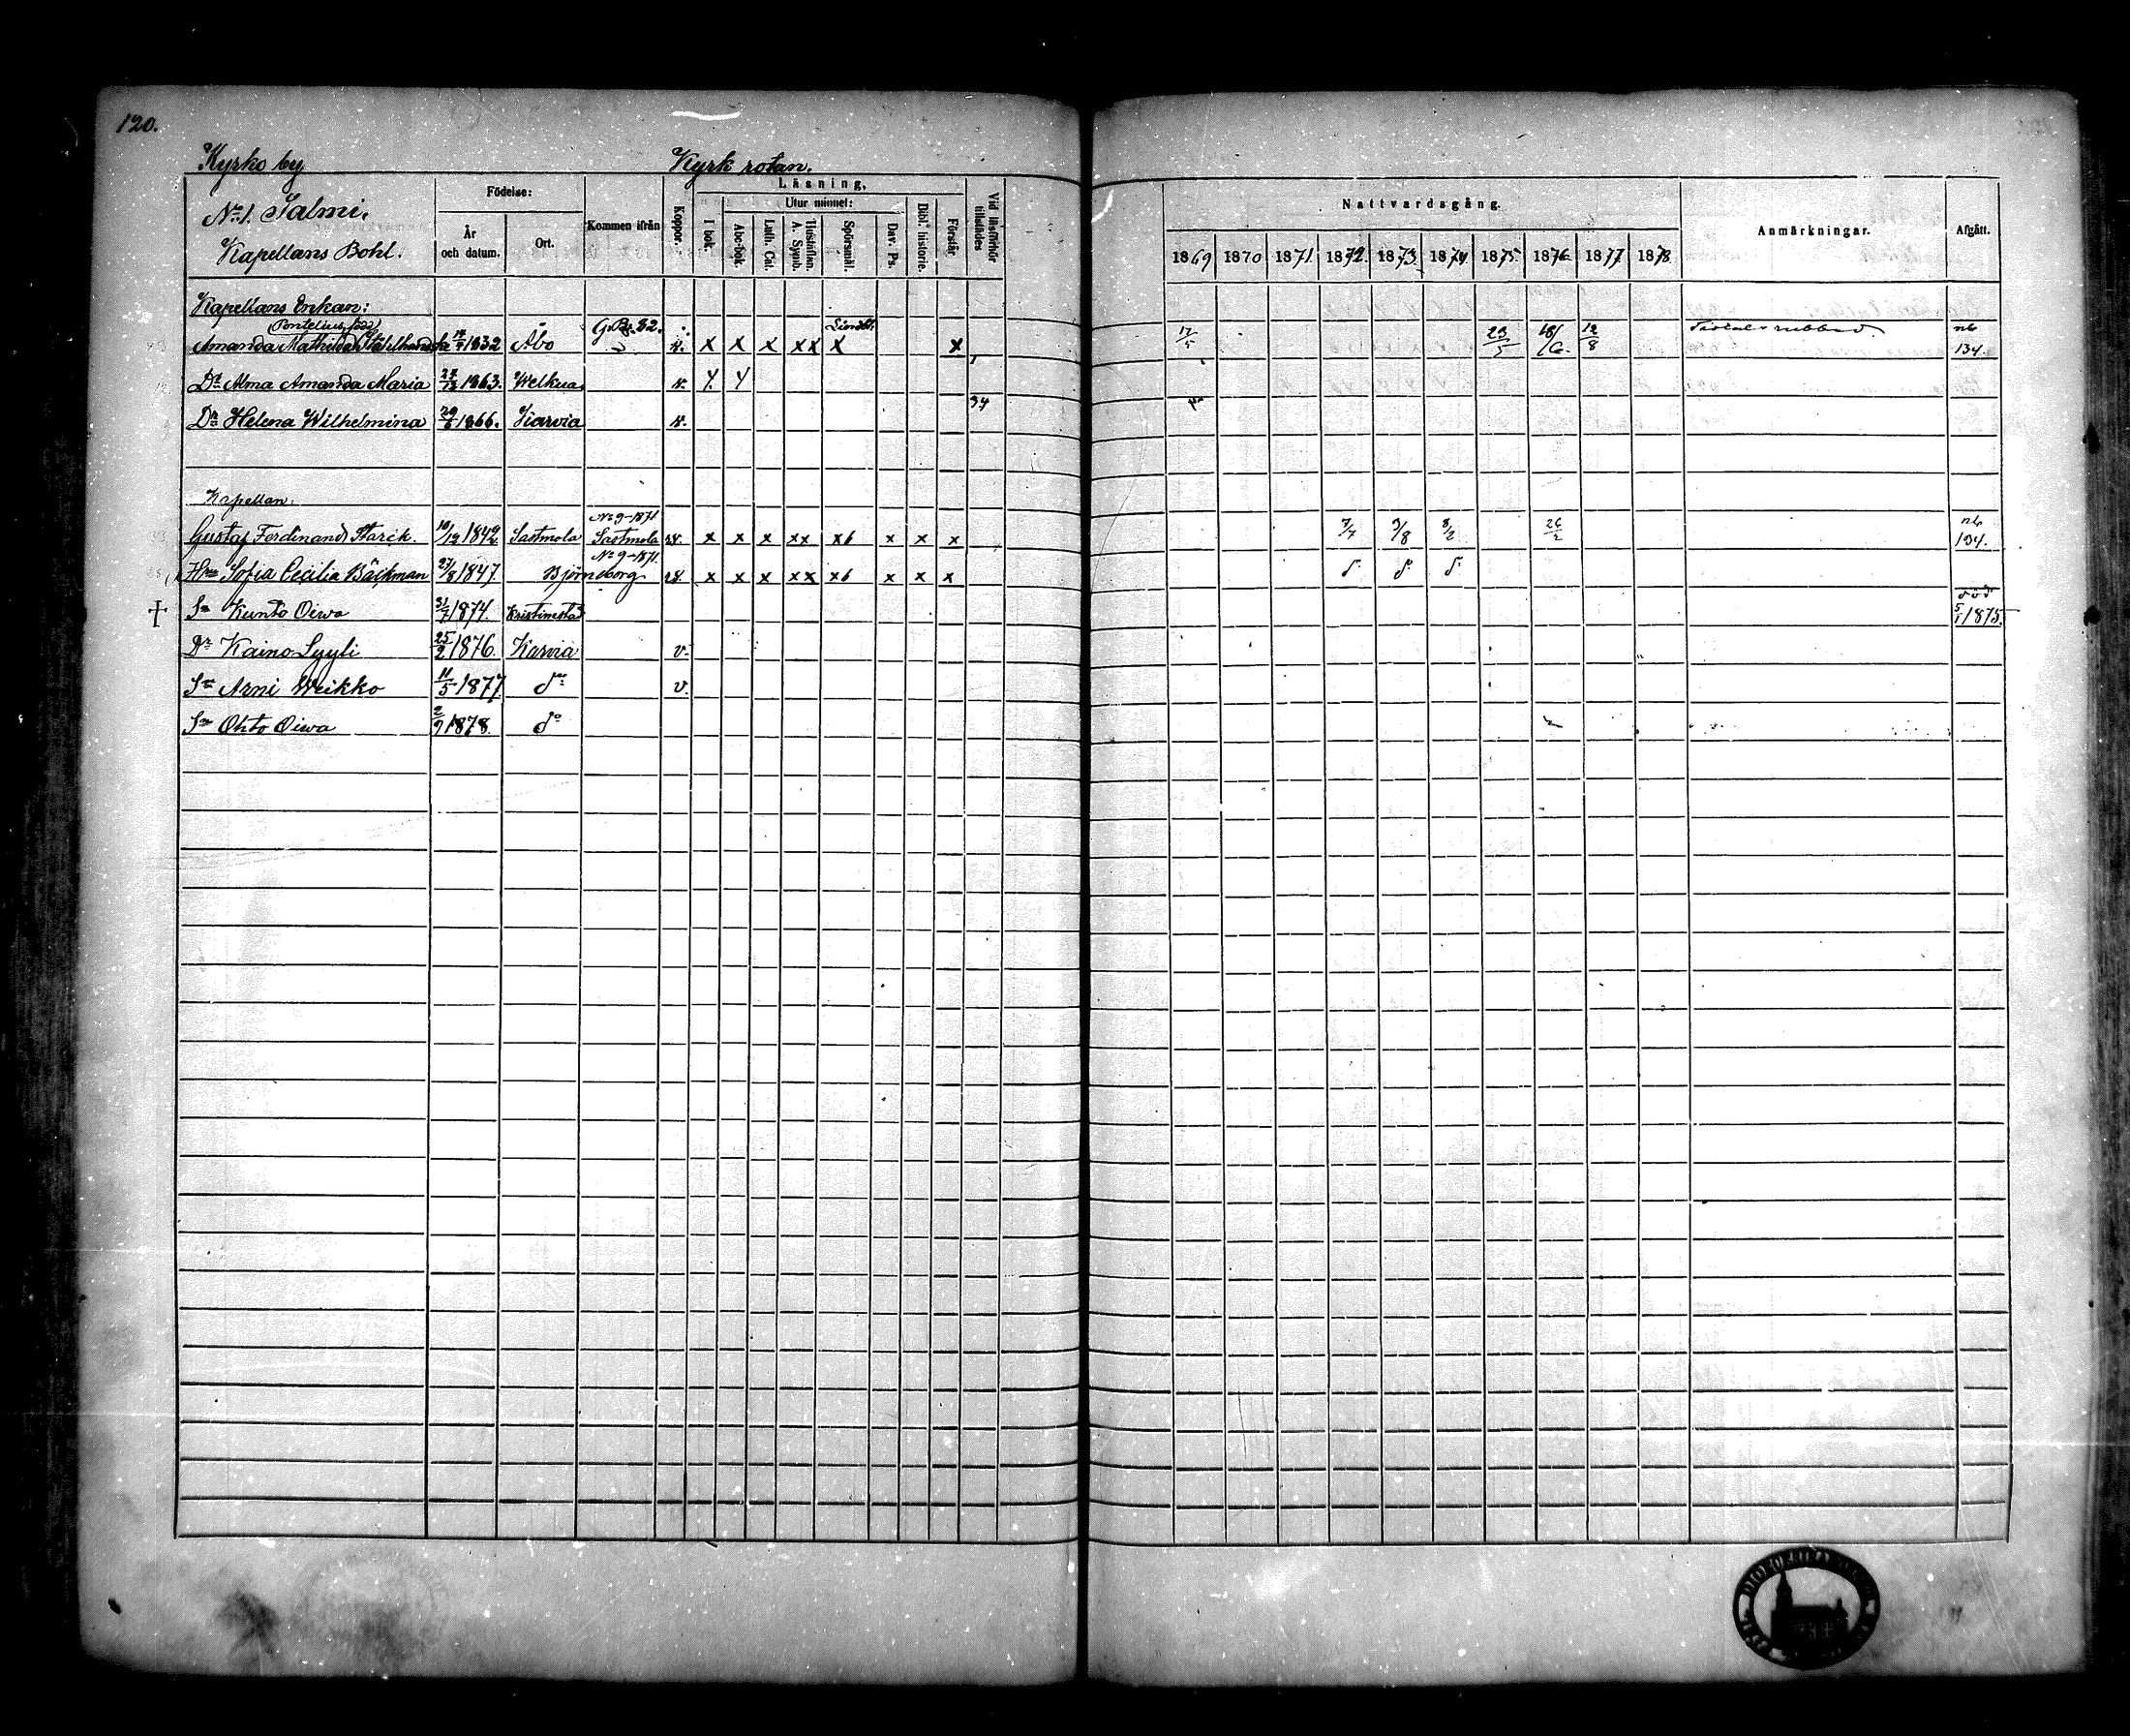 120.
Kyrko by Kyrk rotan.
No 1. Salmi.
Kapellans Bohl.
Födelse: År och datum. Ort. Kommen ifrån Koppor. Läsning, I bok. Utur minnet: Abc-bok. Luth. Cat. Hustaflan. A. Symb. Spörsmål. Dav. Ps. Bibl. historie. Förstår Vid läsförhör tillstädes
Nattvardsgång. Anmärkningar. Afgått.
1869 1870 1871. 1872. 1873. 1874. 1875 1876 1877 1878
Kapellans Enkan:
(Pontelius född G. B. 32.
Amanda Mathilda 1832 Åbo x x x xx x x 17/5 23/5 18/6. 12/8 134.
Dr Alma Amanda Maria 27/12 1863. Welkua
34
Dr Helena Wilhelmina 29/6 1866. Karvia
Kapellan:
No 9-1871
Gustaf Ferdinand Starck. 10/12 1842 Sastmola Sastmola x x x xx x6 x x x 7/7 3/8 8/2 26/2 134.
No 9-1871.
Hru Sofia Cecilia Bäckman 27/8 1847. Björneborg x x x xx x6 x x x do do do
död
† Sn Kunto Oiwa 31/7 1874. Kristinestad 5/1 1875.
Dr Kaino Lyyli 25/2 1876. Karvia v.
Sn Arni Weikko 11/5 1877 do v.
Sn Ohto Oiwa 2/9 1878. do